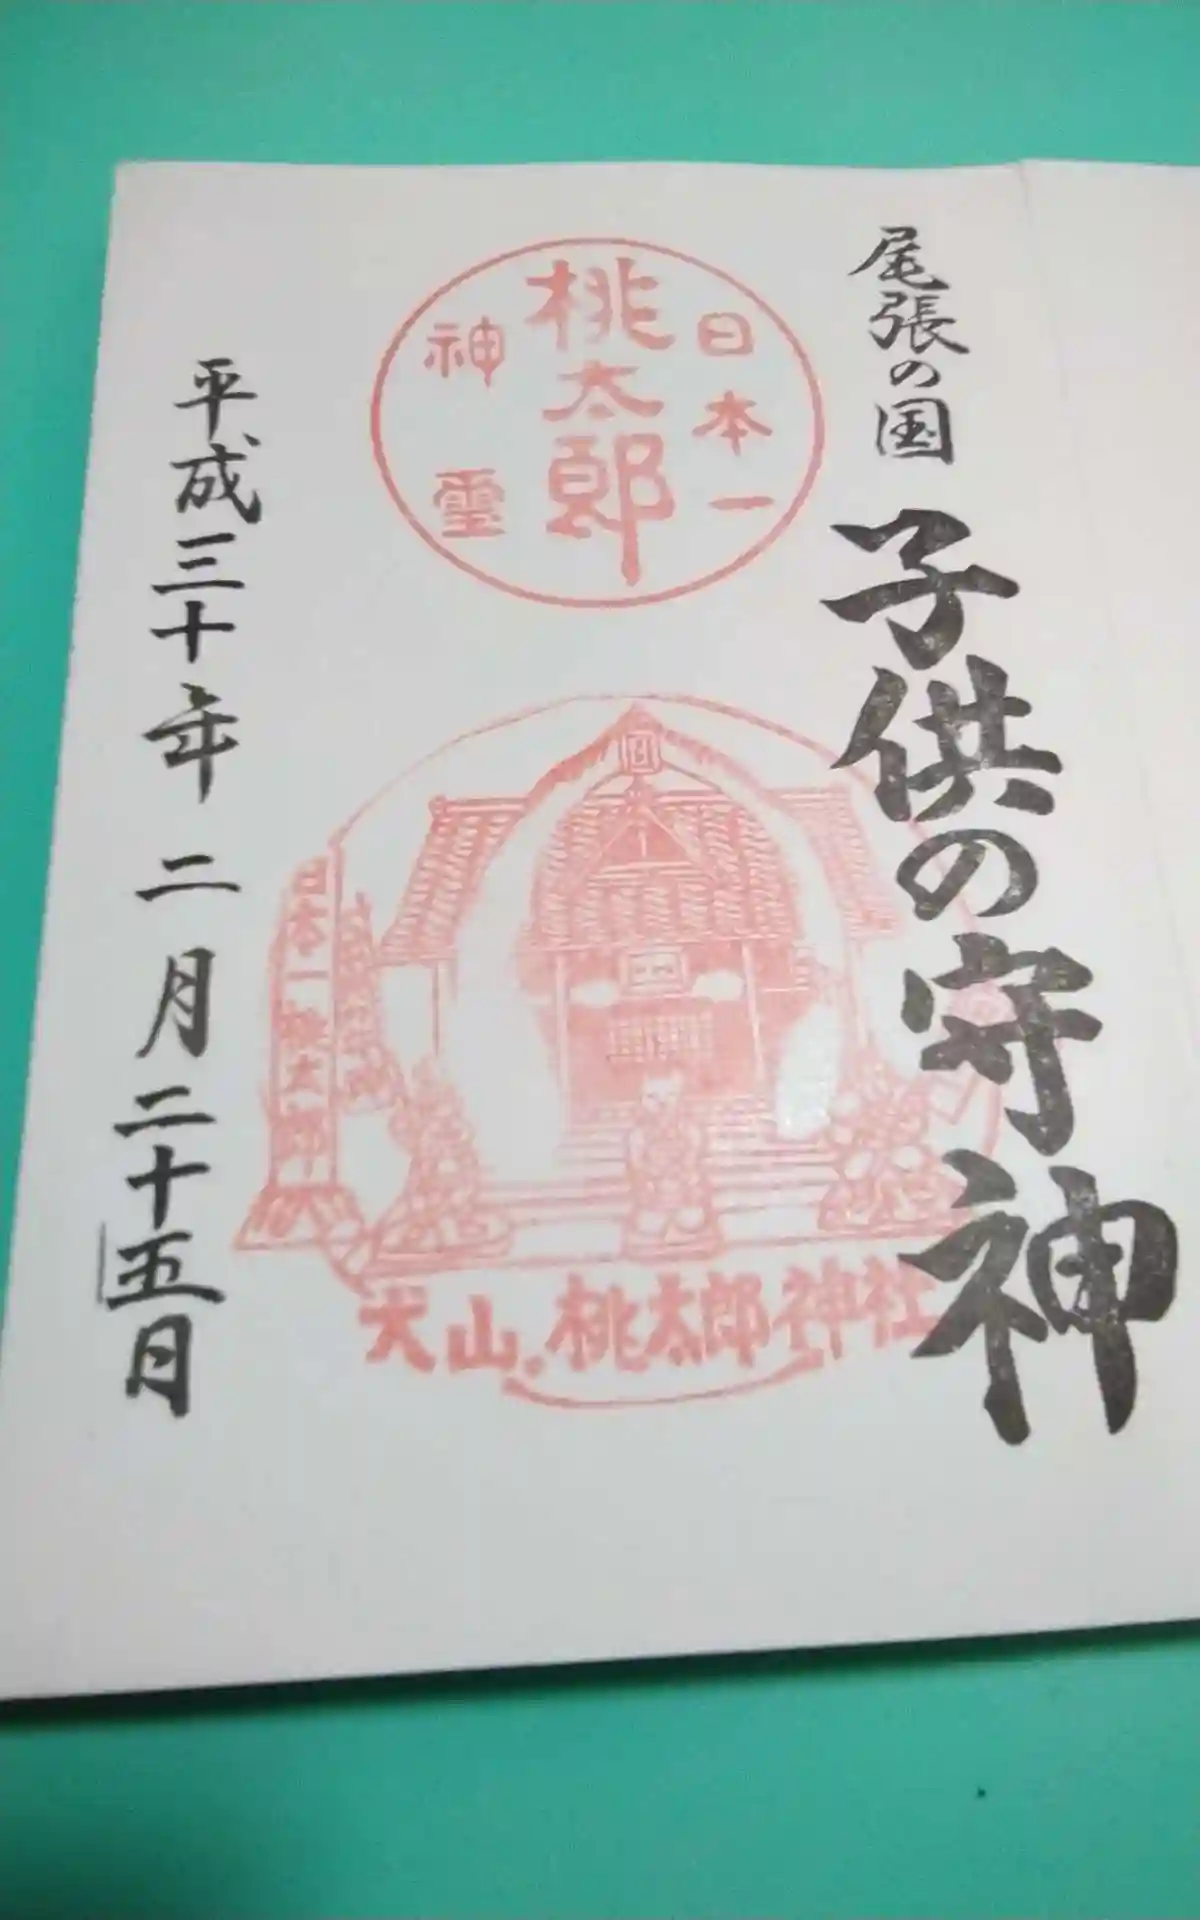 尾張の国
子供の守神
日本一
桃太郎
神霊
日本一桃太郎
犬山.桃太郎神社
平成三十年二月二十五日